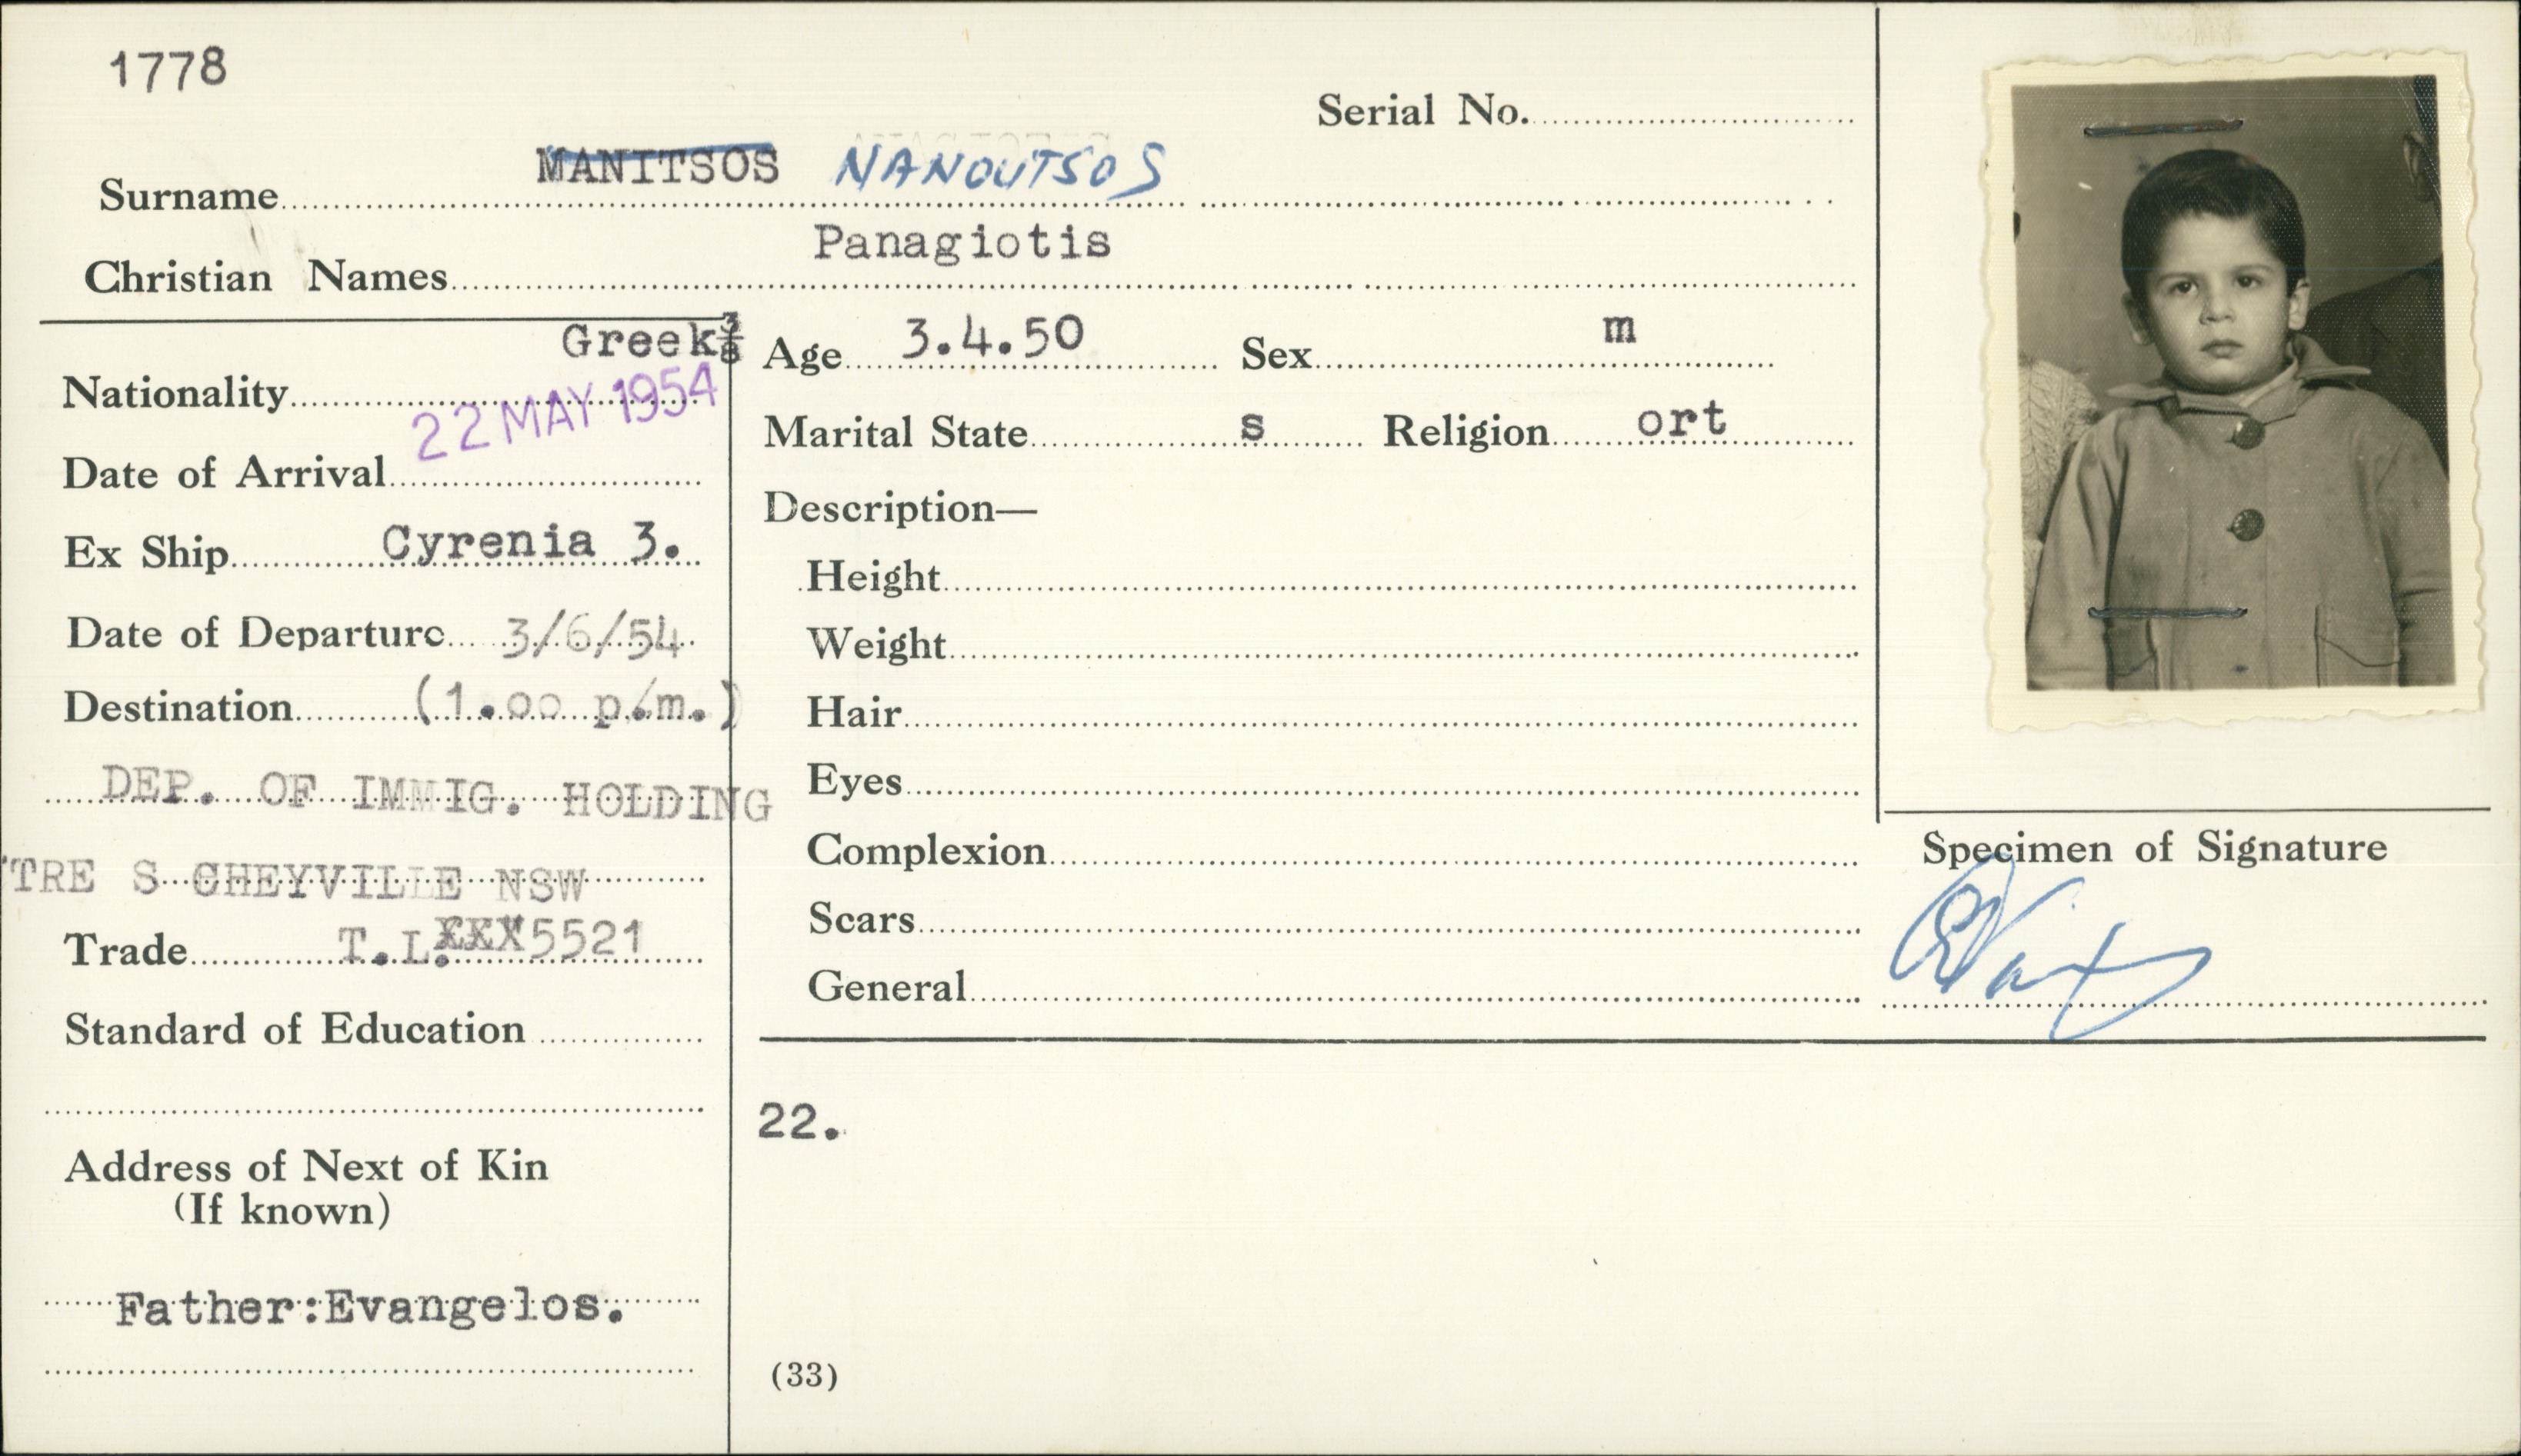 1778
Serial No.
Surname MANITSOS NANOUTSOS
Christian Names Panagiotis
Nationality Greek
Age 3.4.50 Sex m
22 MAY 1954
Date of Arrival
Marital State s Religion ort
Description—
Ex Ship Cyrenia 3.
Height
Date of Departure 3/6/54
Weight
Destination (1.00 p.m.)
Hair
DEP. OF IMMIG. HOLDING
Eyes
Complexion
Specimen of Signature
TRE S CHEYVILLE NSW
Scars
Trade T.L. 5521
General
Standard of Education
22.
Address of Next of Kin
(If known)
Father:Evangelos.
(33)